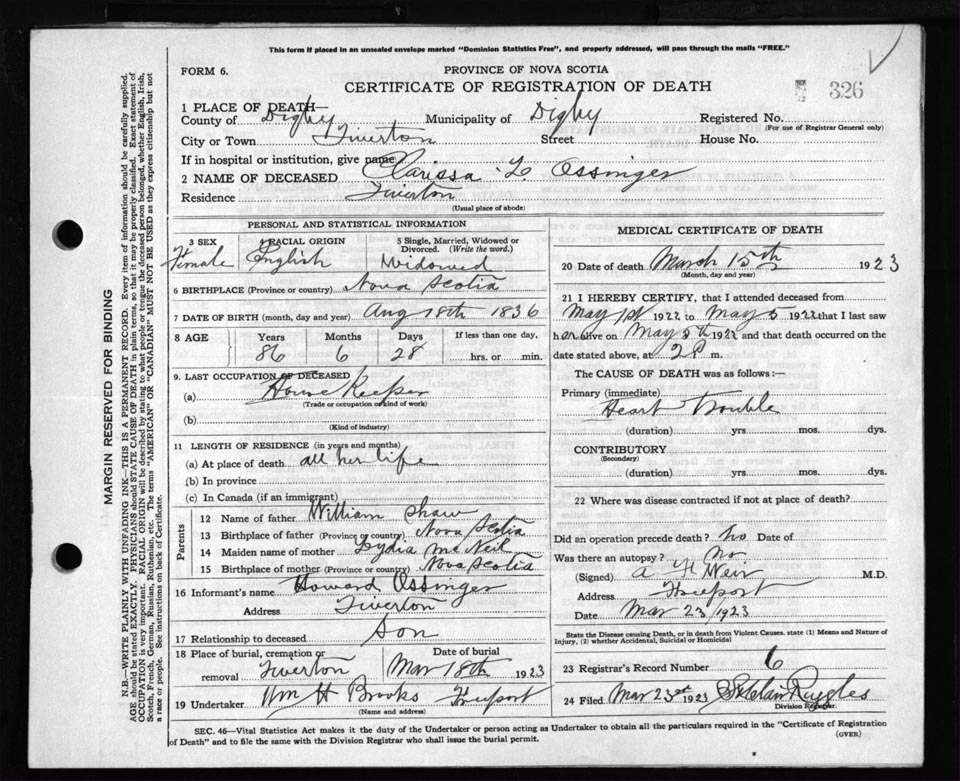 This form if placed in an unsealed envelope marked "Dominion Statistics Free", and properly addressed, will pass through the mails "FREE."
FORM 6.
PROVINCE OF NOVA SCOTIA
CERTIFICATE OF REGISTRATION OF DEATH
326
1 PLACE OF DEATH—
County of Digby Municipality of Digby Registered No.
(For use of Registrar General only)
City or Town Tiverton Street House No.
If in hospital or institution, give name
2 NAME OF DECEASED Clarissa L Ossinger
Residence Tiverton
(Usual place of abode)
PERSONAL AND STATISTICAL INFORMATION
3 SEX 4 RACIAL ORIGIN 5 Single, Married, Widowed or Divorced. (Write the word.)
Female English Widowed
6 BIRTHPLACE (Province or country) Nova Scotia
7 DATE OF BIRTH (month, day and year) Aug 18th 1836
8 AGE Years Months Days If less than one day,
86 6 28 hrs. or min.
9. LAST OCCUPATION OF DECEASED
(a) House Keeper
(Trade or occupation or kind of work)
(b)
(Kind of industry)
11 LENGTH OF RESIDENCE (in years and months)
(a) At place of death all her life
(b) In province
(c) In Canada (if an immigrant)
Parents
12 Name of father William Shaw
13 Birthplace of father (Province or country) Nova Scotia
14 Maiden name of mother Lydia McNeil
15 Birthplace of mother (Province or country) Nova Scotia
16 Informant's name Howard Ossinger
Address Tiverton
17 Relationship to deceased Son
18 Place of burial, cremation or removal Tiverton Date of burial Mar 18th 1923
19 Undertaker Wm H Brooks Freeport
(Name and address)
MEDICAL CERTIFICATE OF DEATH
20 Date of death March 15th 1923
(Month, day and year)
21 I HEREBY CERTIFY, that I attended deceased from
May 1st 1922 to May 5 1922 that I last saw
her alive on May 5th 1922 and that death occurred on the
date stated above, at 2 P m.
The CAUSE OF DEATH was as follows:—
Primary (immediate)
Heart Trouble
(duration) yrs mos. dys.
CONTRIBUTORY
(Secondary)
(duration) yrs. mos. dys.
22 Where was disease contracted if not at place of death?
Did an operation precede death? no Date of
Was there an autopsy? no
(Signed) A H Weir M.D.
Address Freeport
Date Mar 23/1923
State the Disease causing Death, or in death from Violent Causes, state (1) Means and Nature of
Injury, (2) whether Accidental, Suicidal or Homicidal
23 Registrar's Record Number 6
24 Filed Mar 23 1923 Ruggles
Division Registrar.
SEC. 46—Vital Statistics Act makes it the duty of the Undertaker or person acting as Undertaker to obtain all the particulars required in the "Certificate of Registration
of Death" and to file the same with the Division Registrar who shall issue the burial permit.
(OVER)
MARGIN RESERVED FOR BINDING
N.B.—WRITE PLAINLY WITH UNFADING INK—THIS IS A PERMANENT RECORD. Every item of information should be carefully supplied.
AGE should be stated EXACTLY. PHYSICIANS should STATE CAUSE OF DEATH in plain terms, so that it may be properly classified. Exact statement of
OCCUPATION is very important. RACIAL ORIGIN will be described by stating to what people or tongue the deceased person belonged, whether English, Irish,
Scotch, French, German, Russian, Ruthenian, etc. The terms "AMERICAN" or "CANADIAN" MUST NOT BE USED as they express citizenship but not
a race or people. See instructions on back of Certificate.